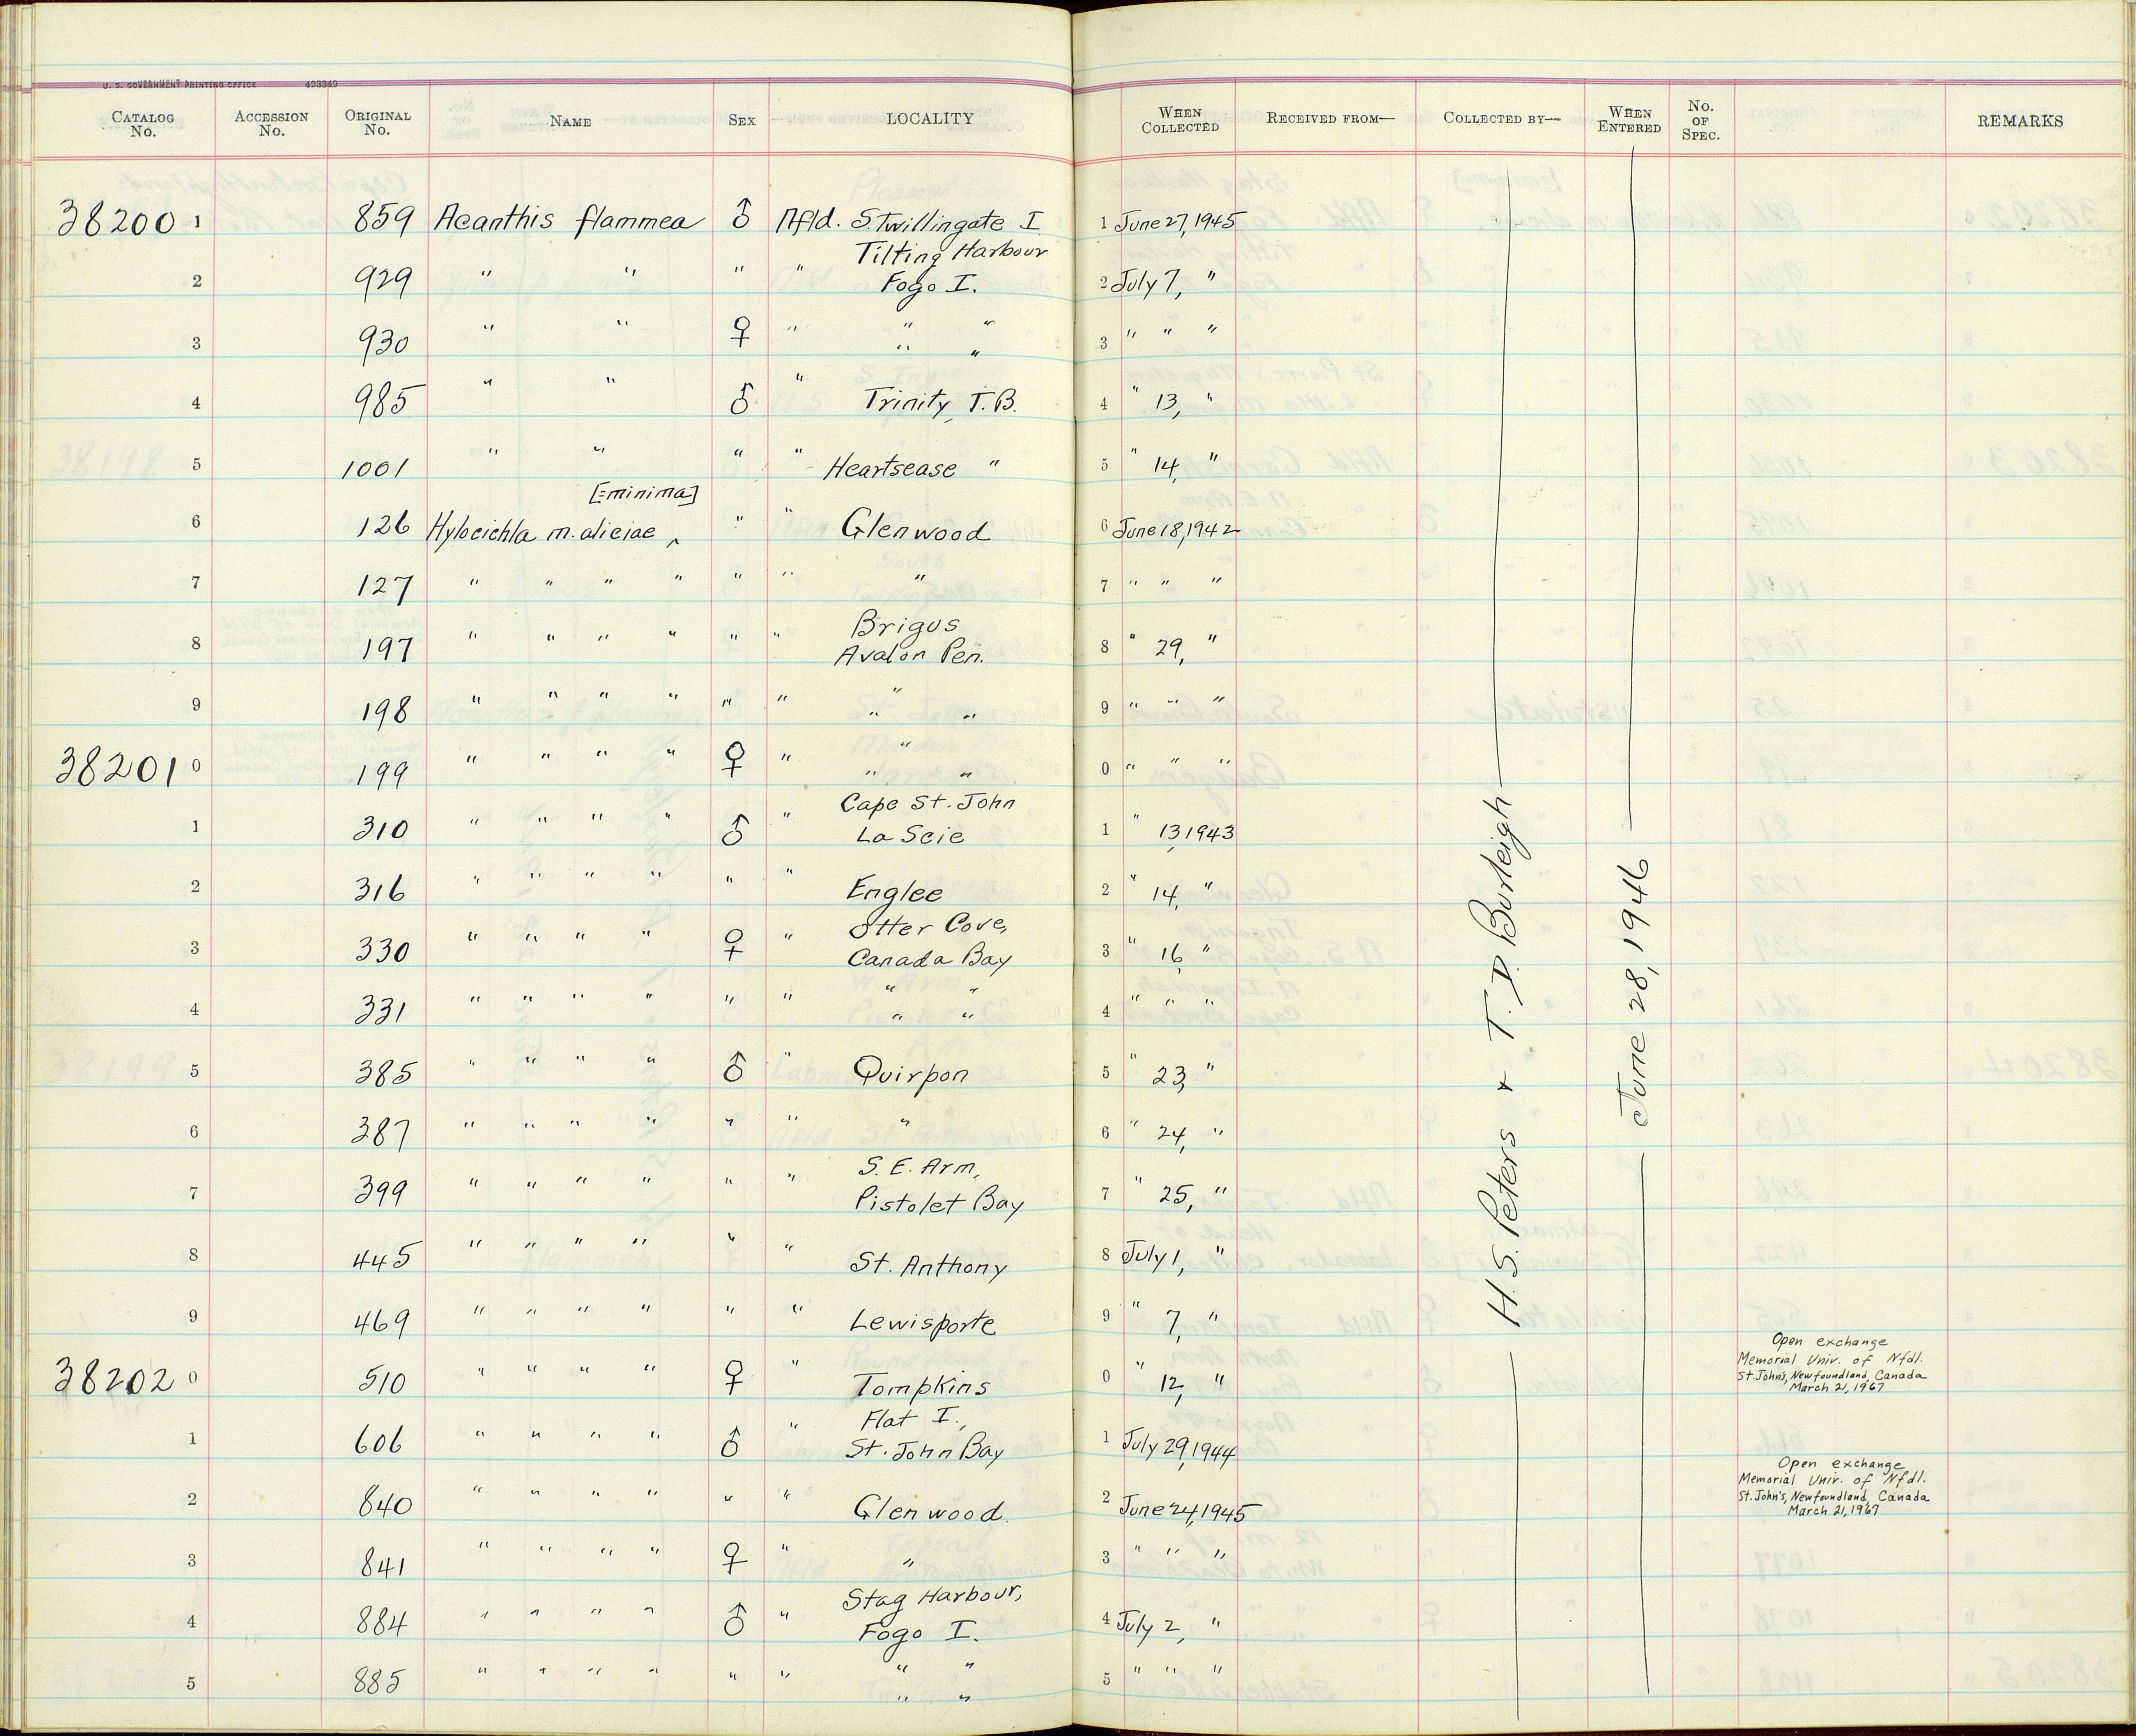 U. S. GOVERNMENT PRINTING OFFICE 423349
CATALOG No. ACCESSION No. ORIGINAL No. NAME SEX LOCALITY WHEN COLLECTED RECEIVED FROM— COLLECTED BY— WHEN ENTERED No. OF SPEC. REMARKS
38200 1 859 Acanthis flammea ♂ Nfld. S. Twillingate I 1 June 27, 1945
Tilting Harbour
2 929 " " " " Fogo I. 2 July 7, "
3 930 " " ♀ " " " 3 " " "
" "
4 985 " " ♂ " Trinity, T.B. 4 " 13, "
5 1001 " " " " Heartsease " 5 " 14, "
[=minima]
6 126 Hylocichla m. aliciae ^ " " Glenwood 6 June 18, 1942
7 127 " " " " " " " 7 " " "
Brigus
8 197 " " " " " " Avalon Pen. 8 " 29, "
9 198 " " " " " " " 9 " " "
" "
38201 0 199 " " " " ♀ " " 0 " " "
" "
Cape St. John
1 310 " " " " ♂ " La Scie 1 " 13, 1943
2 316 " " " " " " Englee 2 " 14, "
Otter Cove,
3 330 " " " " ♀ " Canada Bay 3 " 16, "
4 331 " " " " " " " " 4 " " "
" "
5 385 " " " " ♂ " Quirpon 5 " 23, "
6 387 " " " " " " " 6 " 24, "
S. E. Arm,
7 399 " " " " " " Pistolet Bay 7 " 25, "
8 445 " " " " " " St. Anthony 8 July 1, "
9 469 " " " " " " Lewisporte 9 " 7, "
38202 0 510 " " " " ♀ " Tompkins 0 " 12, "
Open exchange
Memorial Univ. of Nfdl.
St. John's, Newfoundland, Canada
March 21, 1967
Flat I.,
1 606 " " " " ♂ " St. John Bay 1 July 29, 1944
2 840 " " " " " " Glenwood. 2 June 24, 1945
Open exchange
Memorial Univ. of Nfdl.
St. John's, Newfoundland, Canada
March 21, 1967
3 841 " " " " ♀ " " 3 " " "
Stag Harbour,
4 884 " " " " ♂ " Fogo I. 4 July 2, "
5 885 " " " " " " " " 5 " " "
" "
H. S. Peters + T. D. Burleigh
June 28, 1946